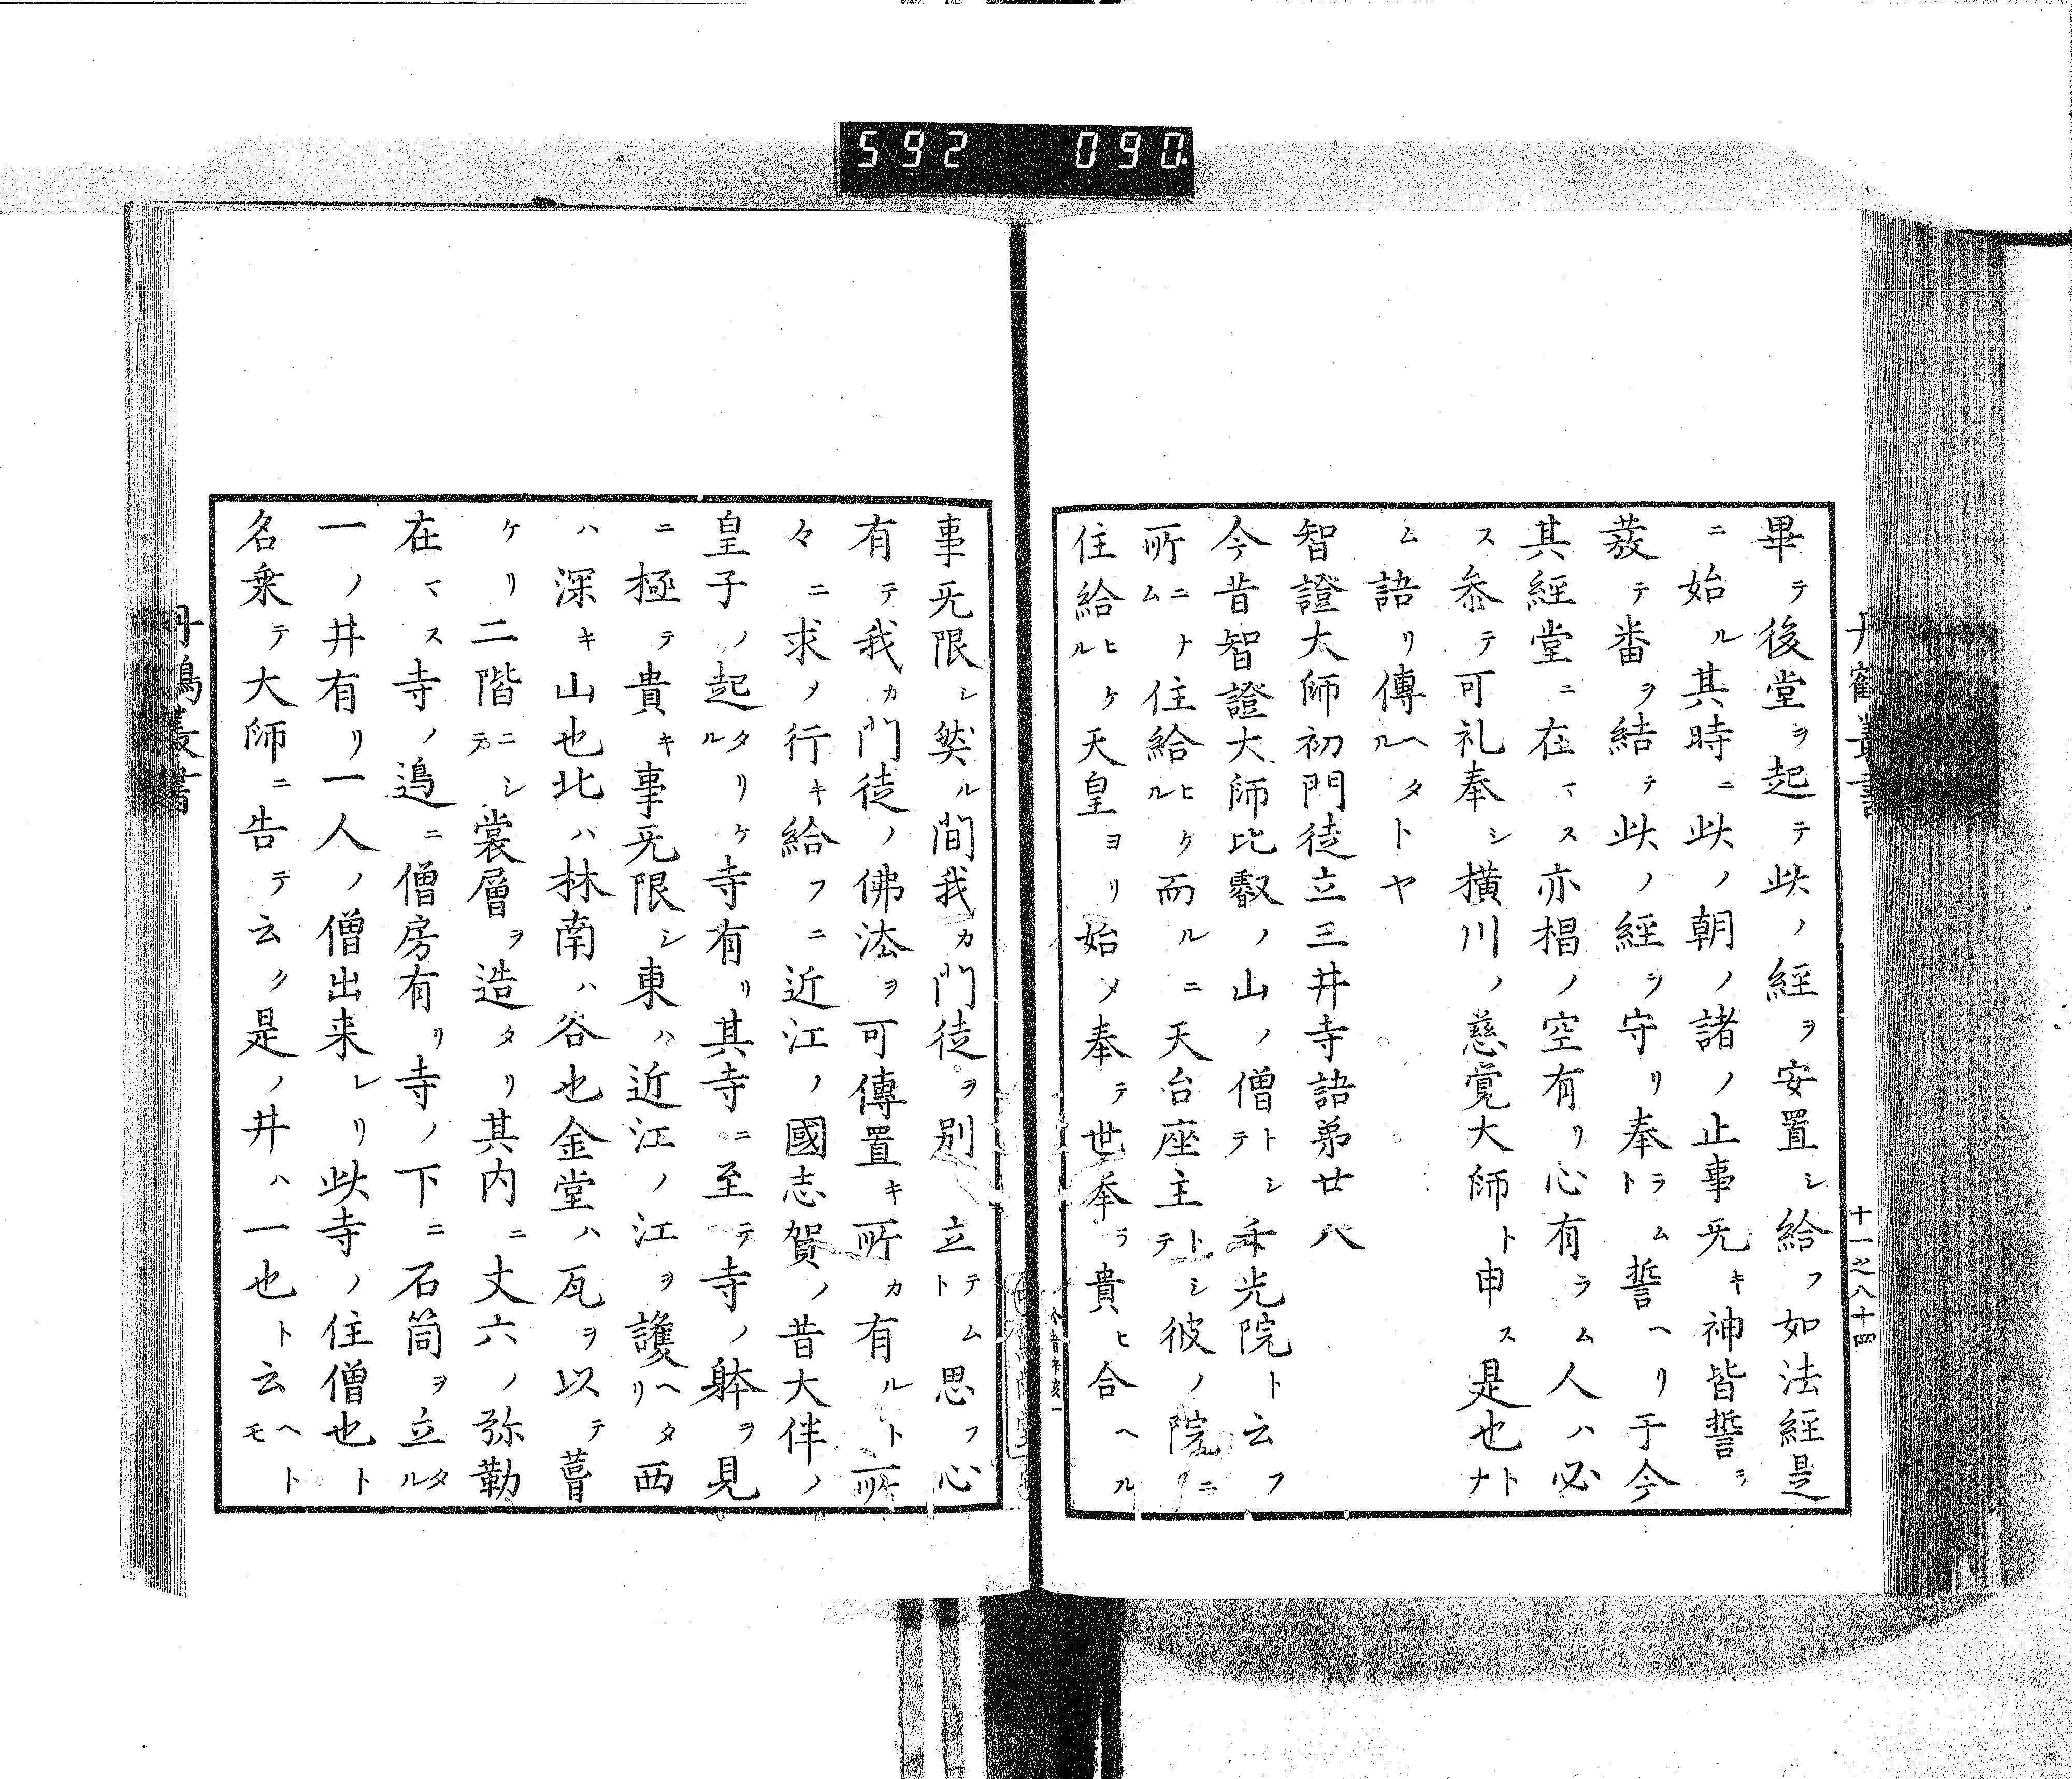 592 090
丹鶴叢書
十一之八十四
畢テ後堂ヲ起テ此ノ經ヲ安置シ給フ如法經是
ニ始ル其時ニ此ノ朝ノ諸ノ止事无キ神皆誓ヲ
發テ番ヲ結テ此ノ經ヲ守リ奉ラムト誓ヘリ于今
其經堂ニ在マス亦椙ノ空有リ心有ラム人ハ必
ス叅テ可礼奉シ横川ノ慈覺大師ト申ス是也トナ
ム語リ傳ヘタルトヤ
智證大師初門徒立三井寺語第廿八
今昔智證大師比叡ノ山ノ僧トシテ千光院ト云フ
所ニナム住給ヒケル而ルニ天台座主トシテ彼ノ院ニ
住給ヒケル天皇ヨリ始メ奉テ世挙ラ貴ヒ合ヘル
事无限シ然ル間我カ門徒ヲ別立テムト思フ心
有テ我カ門徒ノ佛法ヲ可傳置キ所カ有ルト所
々ニ求ノ行キ給フニ近江ノ國志賀ノ昔大伴ノ
皇子ノ起タリケル寺有リ其寺ニ至テ寺ノ躰ヲ見
ニ極テ貴キ事无限シ東ハ近江ノ江ヲ護ヘタリ西
ハ深キ山也北ハ林南ハ谷也金堂ハ瓦ヲ以テ葺
ケリ二階ニシテ裳層ヲ造タリ其内ニ丈六ノ弥勒
在マス寺ノ邉ニ僧房有リ寺ノ下ニ石筒ヲ立タル
一ノ井有リ一人ノ僧出来レリ此寺ノ住僧也ト
名乗テ大師ニ告テ云ク是ノ井ハ一也ト云ヘトモ
丹鶴叢書